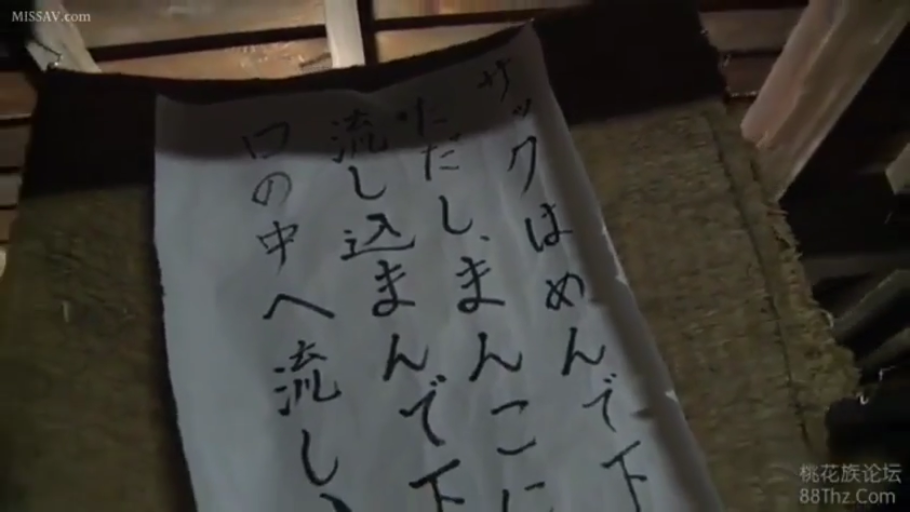 MISSAV.com
サックはめんで下
ただし、まんこに
流し込まんで下
口の中へ流し
桃花族论坛
88Thz.Com